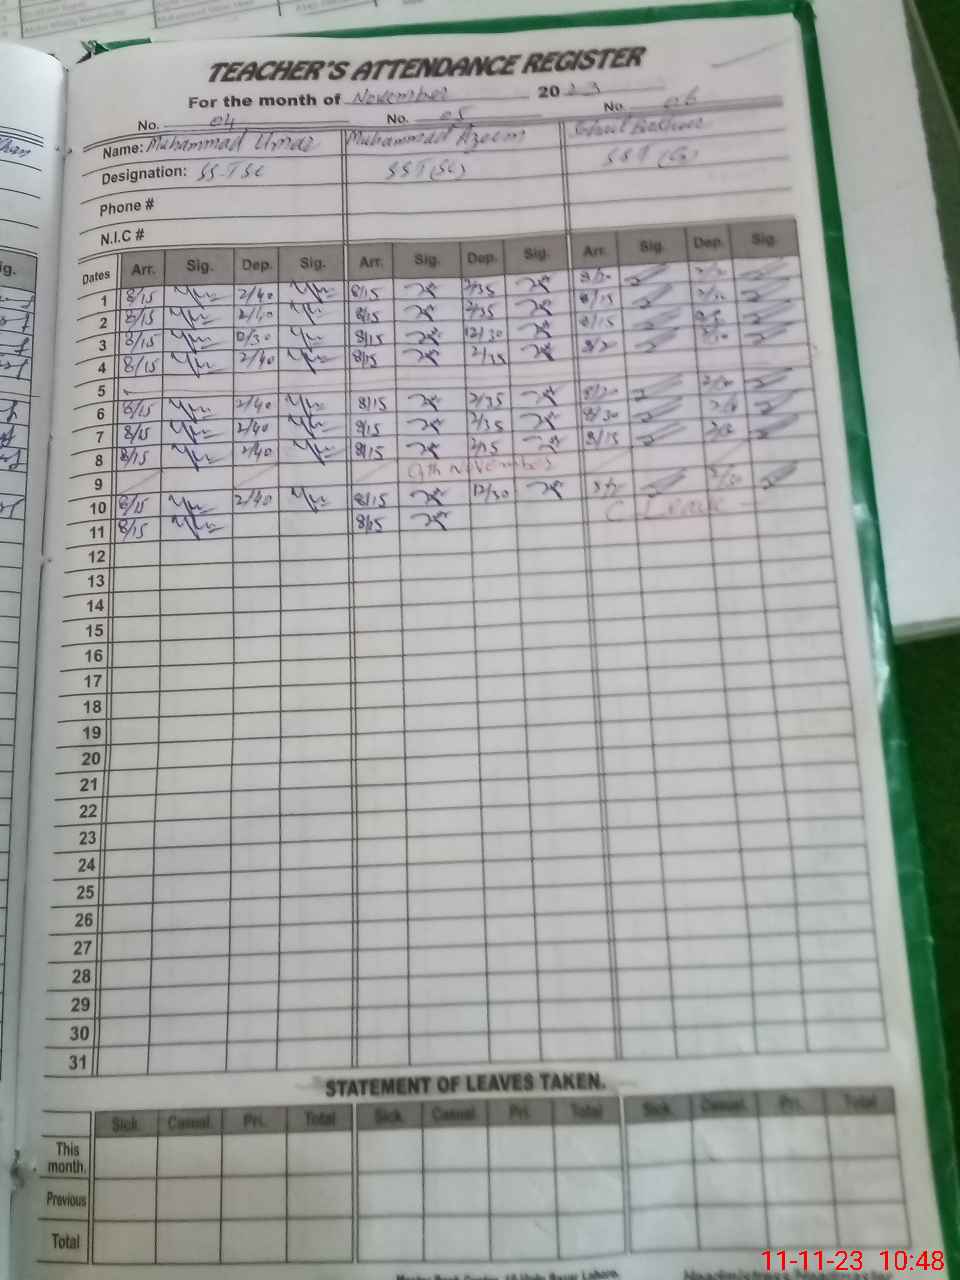 TEACHER'S ATTENDANCE REGISTER
For the month of November 2023
No. 04 No. 05 No. 06
Name: Muhammad Umar Muhammad Azeem
Designation: SSTSC SST(SC) SST (G)
Phone #
N.I.C #
Dates Arr. Sig. Dep. Sig. Arr. Sig. Dep. Sig. Arr. Sig. Dep. Sig.
1 8/15 2/40 8/15 2/35
2 8/15 2/40 8/15 2/35 8/15
3 8/15 8/15 12/30 8/15
4 8/15 2/40 8/15 2/35
5
6 8/15 2/40 8/15 2/35
7 8/15 2/40 8/15 2/35 8/30
8 8/15 2/40 8/15 2/35 8/15
9 9th November
10 8/15 2/40 8/15 12/30
11 8/15 8/15 C. Leave
12
13
14
15
16
17
18
19
20
21
22
23
24
25
26
27
28
29
30
31
STATEMENT OF LEAVES TAKEN.
Sick Casual Pri. Total Sick Casual Pri. Total Sick Casual Pri. Total
This month.
Previous
Total
11-11-23 10:48